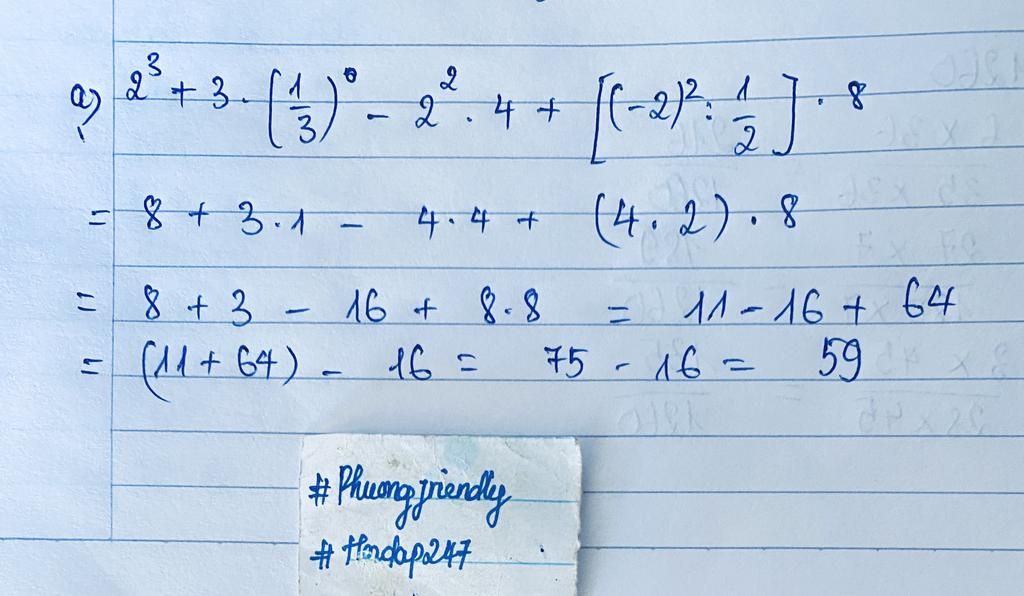 a) 2³ + 3 · (1/3)⁰ - 2² · 4 + [(-2)² : 1/2] · 8
= 8 + 3 · 1 - 4 · 4 + (4 · 2) · 8
= 8 + 3 - 16 + 8 · 8 = 11 - 16 + 64
= (11 + 64) - 16 = 75 - 16 = 59
#Phuongfriendly
#Hoidap247